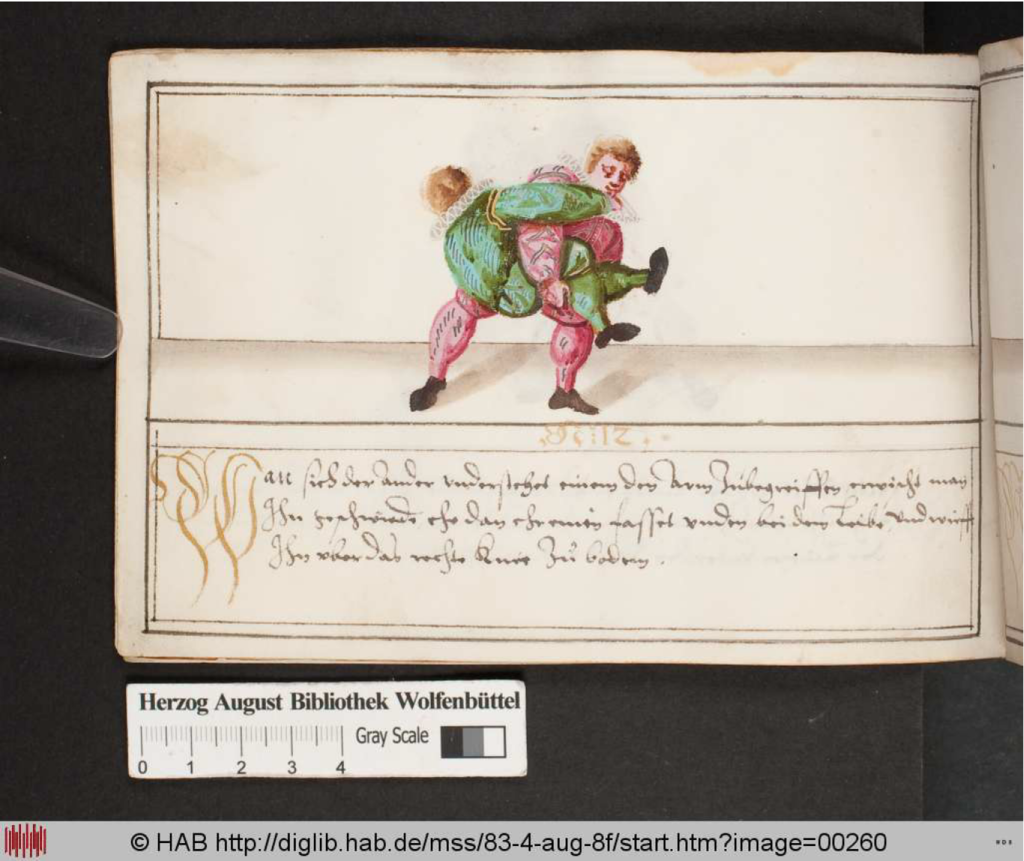 Wan sich der Ander vnderstehet einem den Arm Zubegreiffen erwischt man
Ihn geschwinde ehe dan ehr einen fasset vnden bei dem Leibe Vnd wirfft
Ihn vber das rechte Knee Zu bodem .
Herzog August Bibliothek Wolfenbüttel
0 1 2 3 4
Gray Scale
© HAB http://diglib.hab.de/mss/83-4-aug-8f/start.htm?image=00260